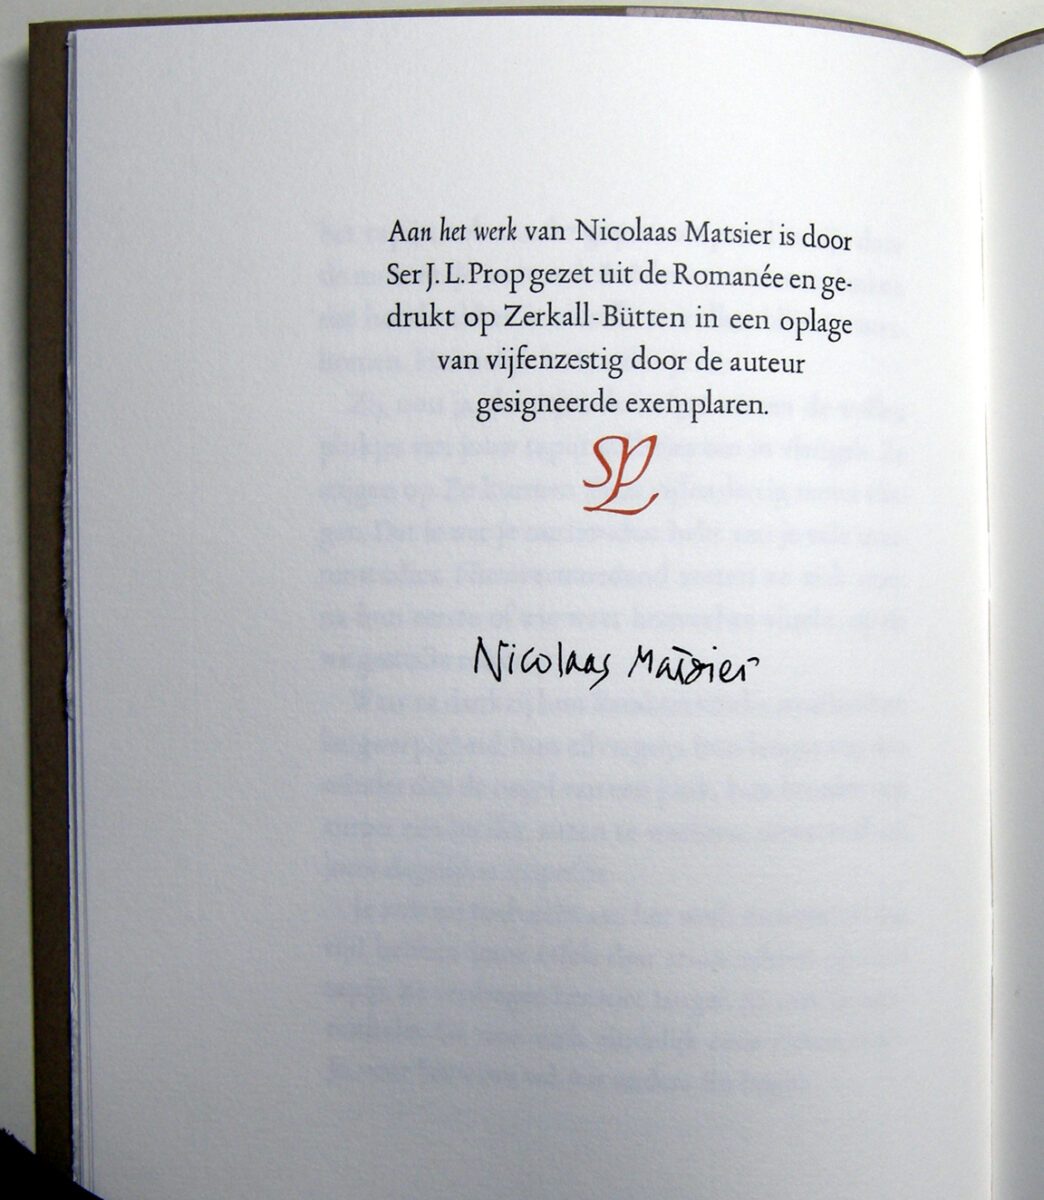 Aan het werk van Nicolaas Matsier is door
Ser J. L. Prop gezet uit de Romanée en ge-
drukt op Zerkall-Bütten in een oplage
van vijfenzestig door de auteur
gesigneerde exemplaren.
SPL
Nicolaas Matsier